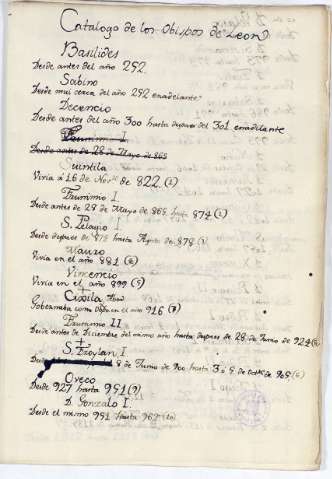 Catalogo de los Obispos de Leon
Basilides
Desde antes del año 252.
Sabino
Desde mui cerca del año 252 enadelante
Decencio
Desde antes del año 300 hasta despues del 301 enadelante
Frunimio I
Desde antes de 28 de Mayo de 865
Suintila
Vivia á 16 de Nov.e de 822. (1)
Frunimio I
Desde antes de 28 de Mayo de 865 hasta 874 (2)
S. Pelagio I
Desde despues de 875 hasta Agosto de 878 (3)
Mauro
Vivia en el año 881 (4)
Vincencio
Vivia en el año 899 (5)
Cixila
Gobernaba como Obispo en el año 916 (7)
Frunimio II
Desde antes de Diciembre del mismo año hasta despues de 28 de Junio de 924 (8)
S. Froylan I
de Junio de 900 hasta 3 ó 5 de Oct.e de 905 (6)
Oveco
Desde 927 hasta 951 (9)
D. Gonzalo I.
Desde el mismo 951 hasta 962 (10)